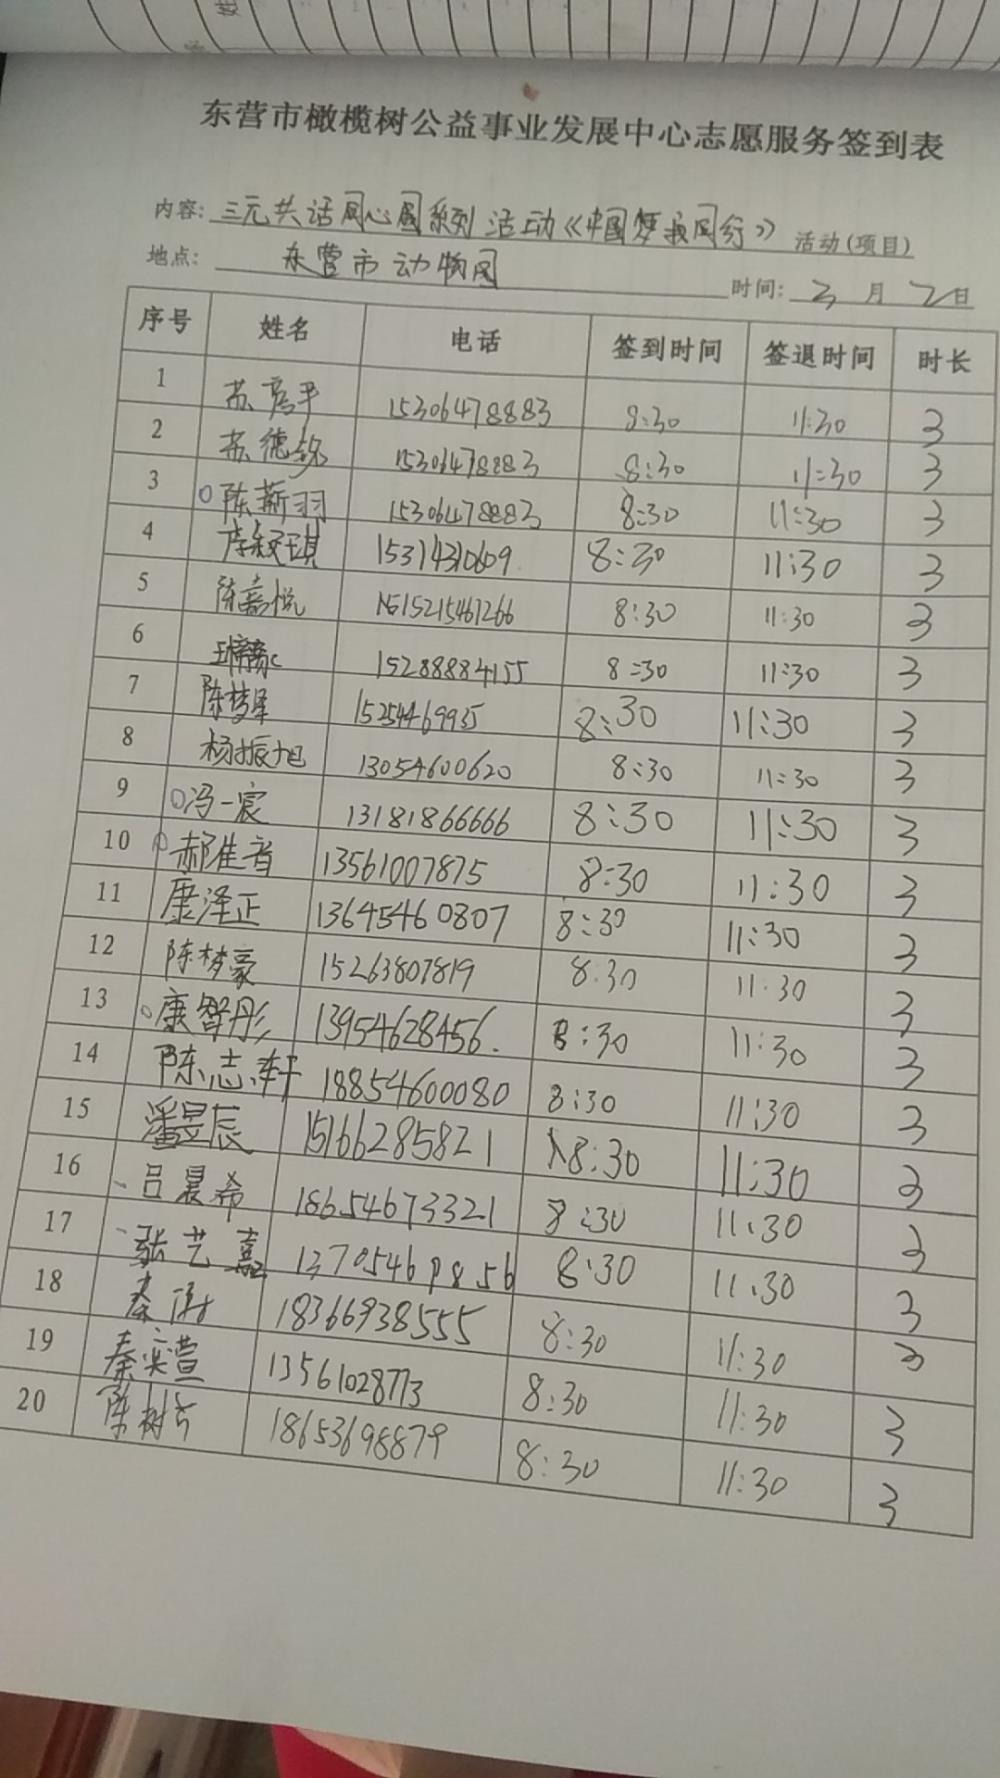 东营市橄榄树公益事业发展中心志愿服务签到表
内容: 三元共话同心圆系列活动《中国梦我同行》 活动(项目)
地点: 东营市动物园 时间: 3 月 2 日
序号 姓名 电话 签到时间 签退时间 时长
1 苏高平 15306478883 8:30 11:30 3
2 苏德 15306478883 8:30 11:30 3
3 陈蕲羽 15306478883 8:30 11:30 3
4 李颖琪 15314310609 8:30 11:30 3
5 陈嘉悦 15215461266 8:30 11:30 3
6 15288884155 8:30 11:30 3
7 陈梦泽 15254469935 8:30 11:30 3
8 杨振旭 13054600620 8:30 11:30 3
9 冯一宸 13181866666 8:30 11:30 3
10 郝佳音 13561007875 8:30 11:30 3
11 康泽正 13645460807 8:30 11:30 3
12 陈梦豪 15263807819 8:30 11:30 3
13 康智彤 13954628456. 8:30 11:30 3
14 陈志轩 18854600080 8:30 11:30 3
15 潘昱辰 15166285821 8:30 11:30 3
16 吕晨希 18654673321 8:30 11:30 3
17 张艺嘉 1370546 8:30 11:30 3
18 秦 18366938555 8:30 11:30 3
19 秦奕萱 13561028773 8:30 11:30 3
20 陈树 18653698879 8:30 11:30 3